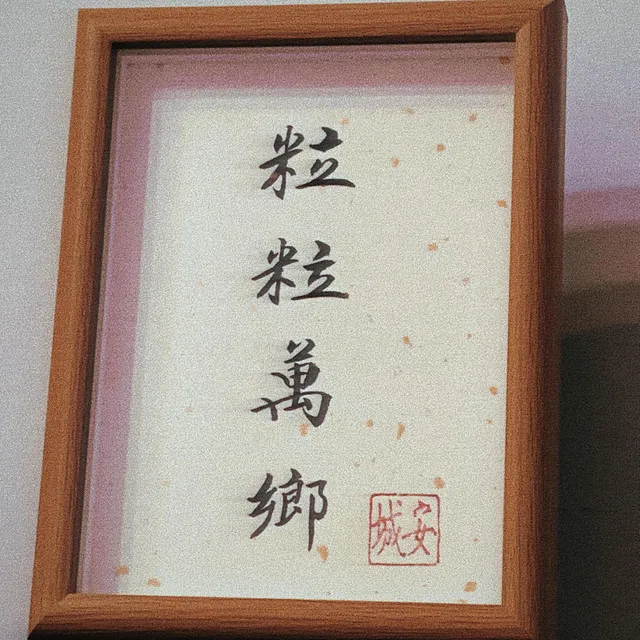 粒粒萬鄉
安城